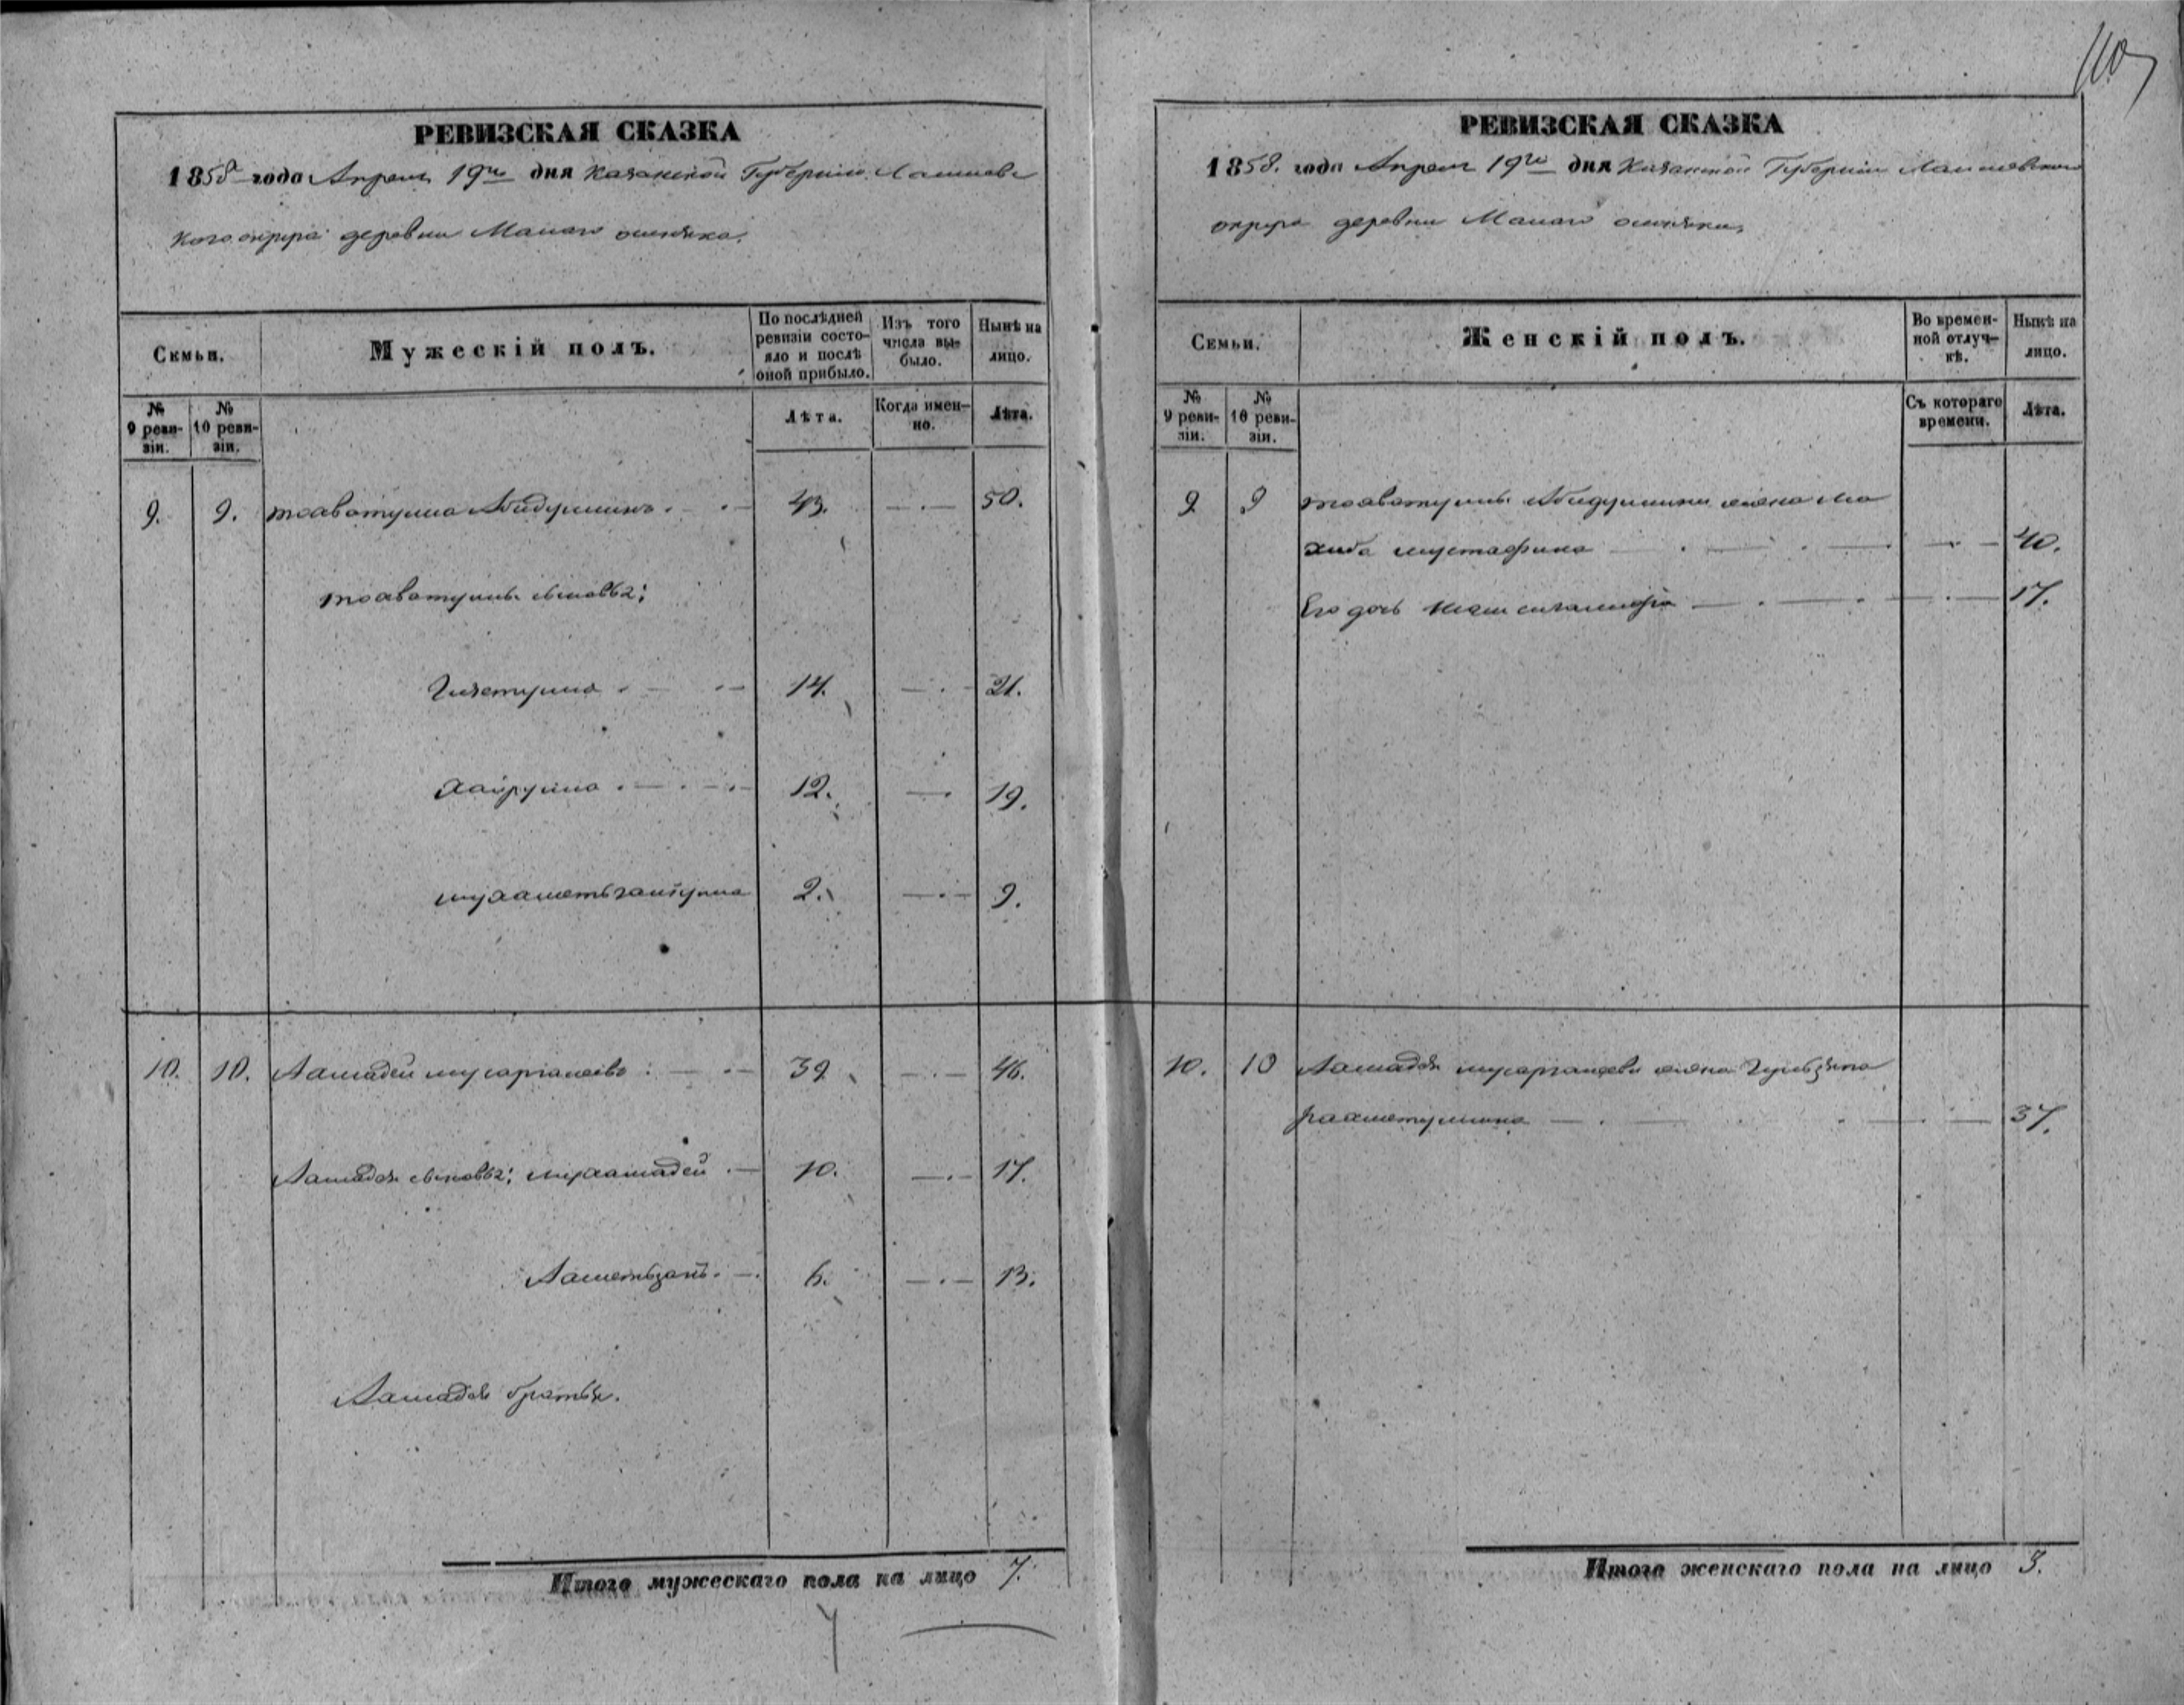 110
РЕВИЗСКАЯ СКАЗКА
1858 года Апреля 19го дня Казанской Губерніи Лаишевс
кого округа деревни Малаго
Семьи.
Мужескій полъ.
По послѣдней ревизіи состояло и послѣ оной прибыло.
Изъ того числа выбыло.
Нынѣ на лицо.
№ 9 ревизіи.
№ 10 ревизіи.
Лѣта.
Когда именно.
Лѣта.
9. 9. Тоаватулла Абидуллинъ 43. 50.
Тоаватуллы сыновья;
14. 21.
Хайрулла 12. 19.
2. 9.
10. 10. 39. 46.
сыновья; 10. 17.
6. 13.
братья.
Итого мужескаго пола на лицо 7.
РЕВИЗСКАЯ СКАЗКА
1858. года Апреля 19го дня Казанской Губерніи Лаишевскаго
округа деревни Малаго
Семьи.
Женскій полъ.
Во временной отлучкѣ.
Нынѣ на лицо.
№ 9 ревизіи.
№ 10 ревизіи.
Съ котораго времени.
Лѣта.
9 9 Тоаватуллы Абидуллина жена Ма
хиба Мустафина 40.
Его дочь 17.
10. 10 жена
Рахметуллина 37.
Итого женскаго пола на лицо 3.